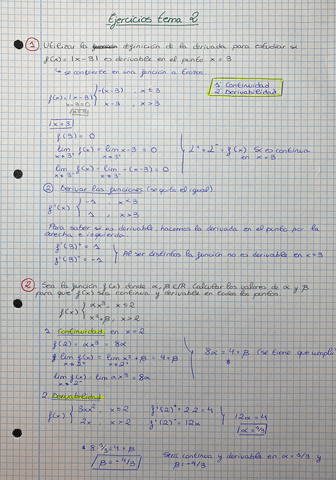 Ejercicios tema 2
1 Utilizar la definición de la derivada para estudiar si
f(x) = |x - 3| es derivable en el punto x = 3
→ se convierte en una función a trozos.
1. Continuidad
2. Derivabilidad
f(x) = |x - 3| { -(x - 3) , x ≤ 3
x - 3 = 0
x - 3 , x > 3
x = 3
x = 3
f(3) = 0
lim f(x) = lim x - 3 = 0
x→3⁺ x→3⁺
L⁺ = L⁻ = f(x) Sí es continua
en x = 3
lim f(x) = lim -(x - 3) = 0
x→3⁻ x→3⁻
2 Derivar las funciones (se quita el igual).
f'(x) { -1 , x < 3
1 , x > 3
Para saber si es derivable, hacemos la derivada en el punto por la
derecha e izquierda
f'(3)⁺ = 1
f'(3)⁻ = -1
Al ser distintos la función no es derivable en x = 3
2 Sea la función f(x) donde α, β ∈ R. Calcular los valores de α y β
para que f(x) sea continua y derivable en todos los puntos.
f(x) { αx³ , x ≤ 2
x² + β , x > 2
1. Continuidad en x = 2
f(2) = αx³ = 8α
lim f(x) = lim x² + β = 4 + β
x→2⁺ x→2⁺
8α = 4 + β (se tiene que cumplir)
*
lim f(x) = lim αx³ = 8α
x→2⁻
2. Derivabilidad
f(x) { 3αx² , x ≤ 2
2x , x > 2
f'(2)⁺ = 2·2 = 4
f'(2)⁻ = 12α
12α = 4
* 8· = 4 + β
β = -4/3
Será continua y derivable en y
β = -4/3